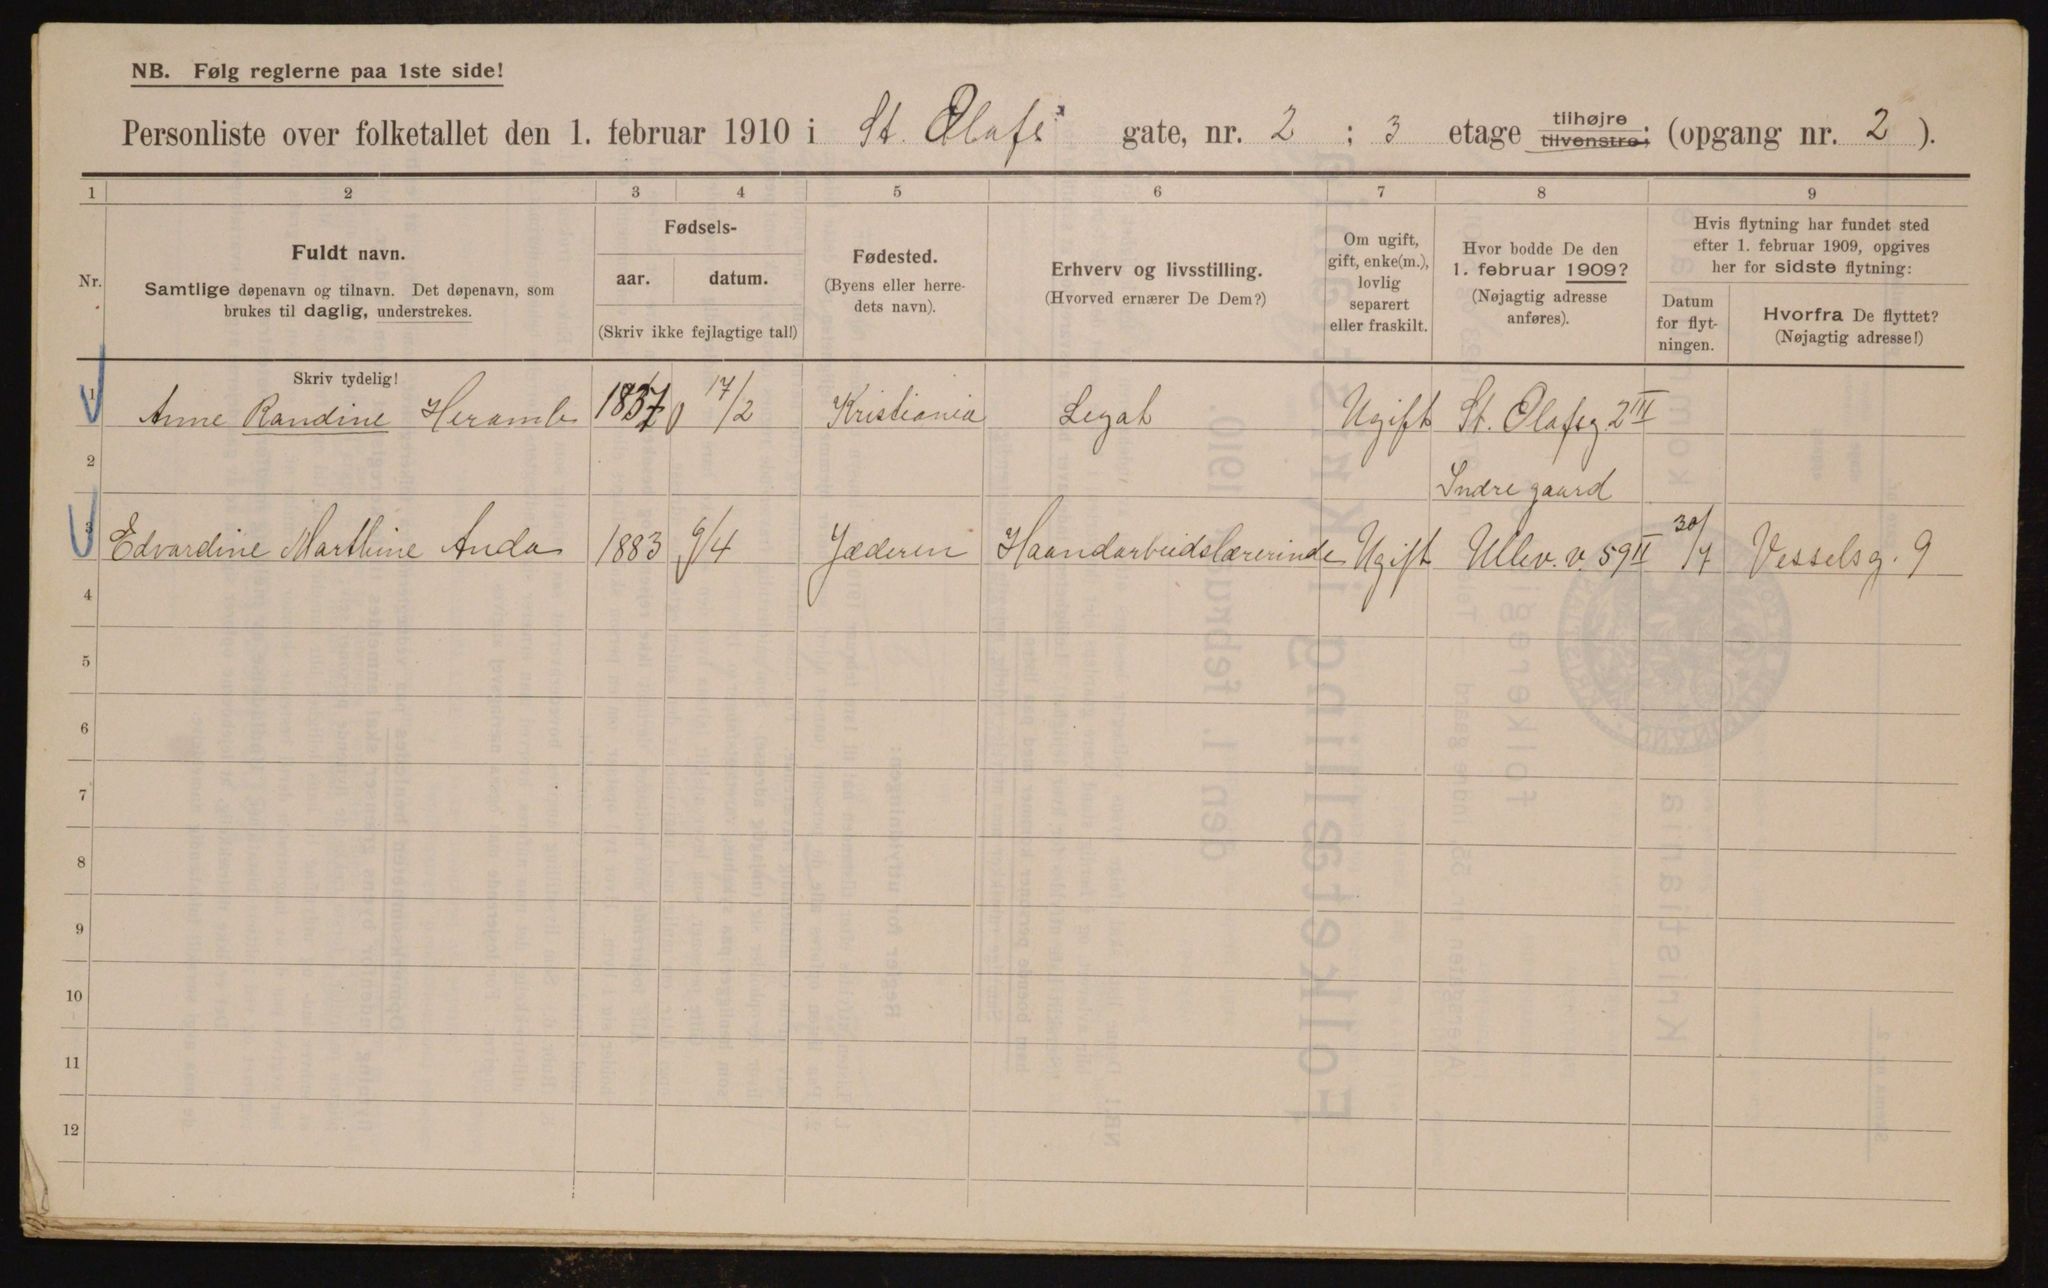 NB. Følg reglerne paa 1ste side!
Personliste over folketallet den 1. februar 1910 i St. Olafs gate, nr. 2 ; 3 etage tilhøjre tilvenstre; (opgang nr. 2 ).
1 2 3 4 5 6 7 8 9
Nr.
Fuldt navn.
Samtlige døpenavn og tilnavn. Det døpenavn, som
brukes til daglig, understrekes.
Fødsels-
aar. datum.
(Skriv ikke fejlagtige tal!)
Fødested.
(Byens eller herre-
dets navn).
Erhverv og livsstilling.
(Hvorved ernærer De Dem?)
Om ugift,
gift, enke(m.),
lovlig
separert
eller fraskilt.
Hvor bodde De den
1. februar 1909?
(Nøjagtig adresse
anføres).
Hvis flytning har fundet sted
efter 1. februar 1909, opgives
her for sidste flytning:
Datum
for flyt-
ningen.
Hvorfra De flyttet?
(Nøjagtig adresse!)
Skriv tydelig!
1 Anne Randine Heramb 1837 17/2 Kristiania Legat Ugift St. Olafsg. 2 III
2 Indre gaard
3 Edvardine Marthine Anda 1883 9/4 Jæderen Haandarbeidslærerinde Ugift Ullev. v. 59 II 30/7 Vesselsg. 9
4
5
6
7
8
9
10
11
12